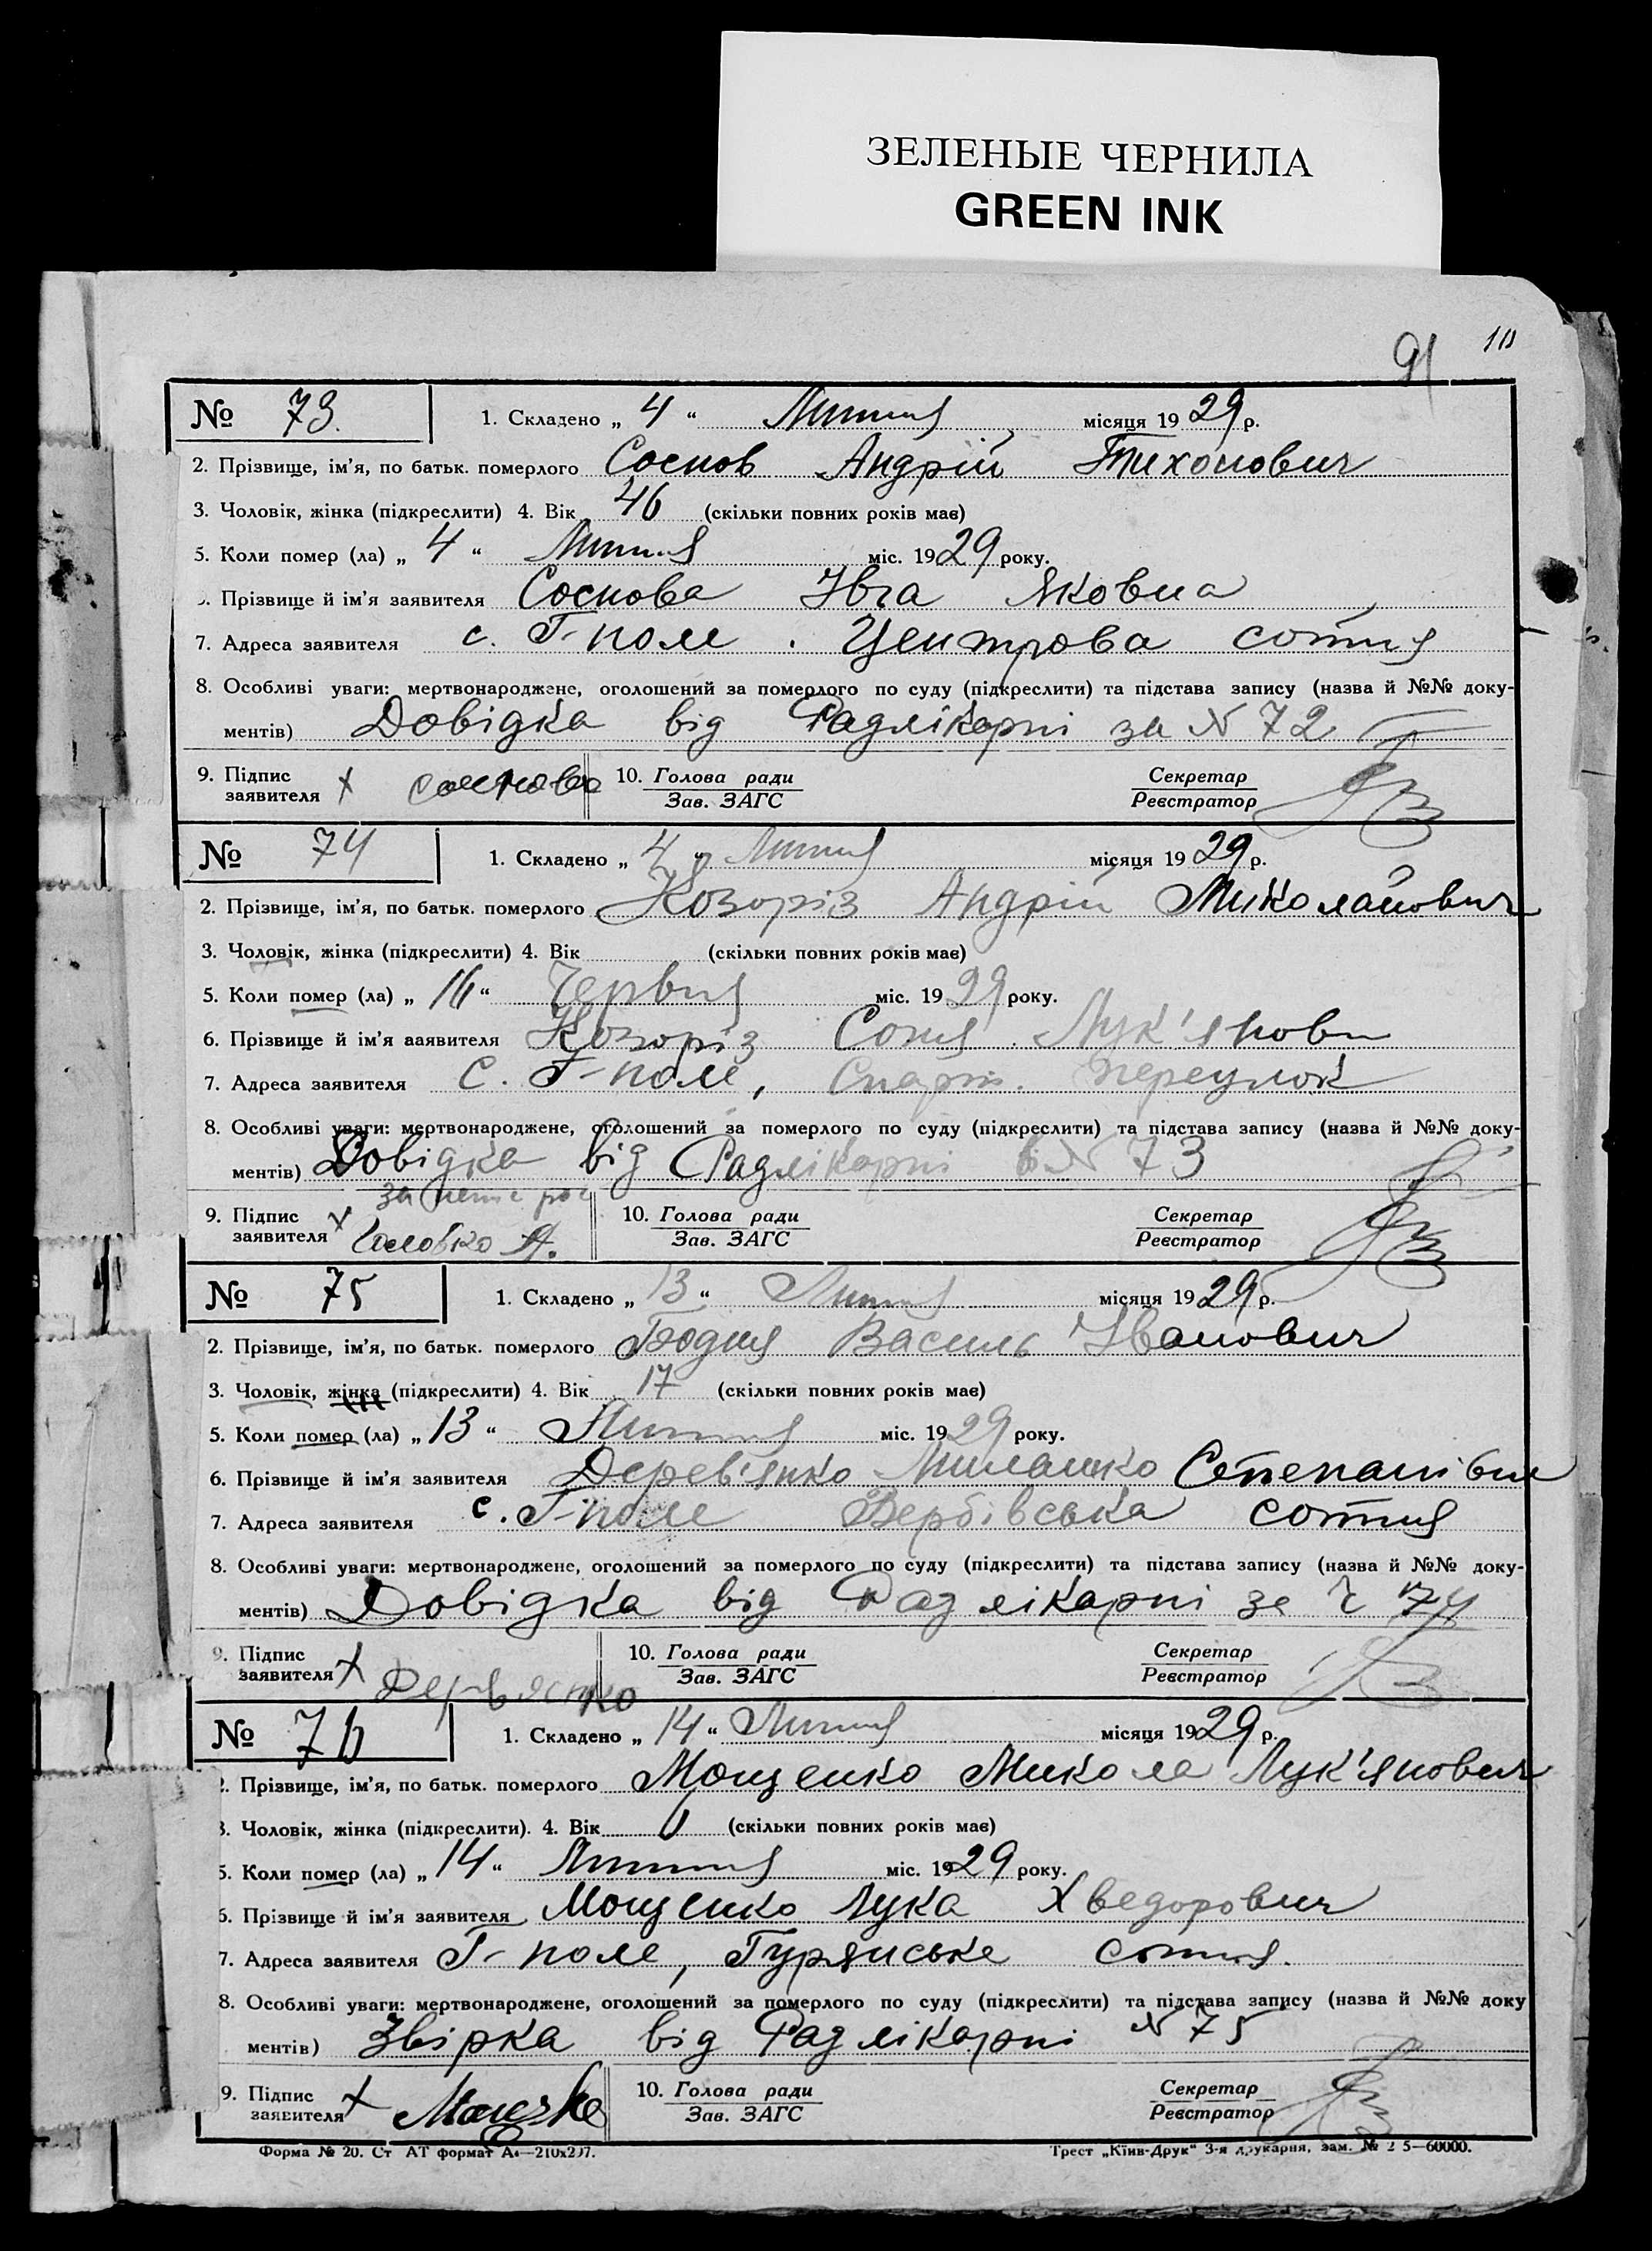 ЗЕЛЕНЫЕ ЧЕРНИЛА
GREEN INK
91 10
№ 73. 1. Складено „ 4 “ Липня місяця 1929 р.
2. Прізвище, ім'я, по батьк. померлого Соснов Андрій Тихонович
3. Чоловік, жінка (підкреслити) 4. Вік 46 (скільки повних років має)
5. Коли помер (ла) „ 4 “ Липня міс. 1929 року.
. Прізвище й ім'я заявителя Соснова Івга Яковна
7. Адреса заявителя с. Г-поле . Центрова сотня
8. Особливі уваги: мертвонароджене, оголошений за померлого по суду (підкреслити) та підстава запису (назва й №№ доку-
ментів) Довідка від Радлікарні за N 72
9. Підпис заявителя х Соснова 10. Голова ради Секретар
Зав. ЗАГС Реєстратор
№ 74 1. Складено „ 4 “ Липня місяця 1929 р.
2. Прізвище, ім'я, по батьк. померлого Козоріз Андрій Миколайович
3. Чоловік, жінка (підкреслити) 4. Вік (скільки повних років має)
5. Коли помер (ла) „ 16 “ Червня міс. 1929 року.
6. Прізвище й ім'я ааявителя Козоріз Соня Лук'яновн
7. Адреса заявителя с. Г-поле, переулок
8. Особливі уваги: мертвонароджене, оголошений за померлого по суду (підкреслити) та підстава запису (назва й №№ доку-
ментів) Довідка від Радлікарні N 73
за
9. Підпис заявителя х Головко А. 10. Голова ради Секретар
Зав. ЗАГС Реєстратор
№ 75 1. Складено „ 13 “ Липня місяця 1929 р.
2. Прізвище, ім'я, по батьк. померлого Василь Іванович
3. Чоловік, жінка (підкреслити) 4. Вік 17 (скільки повних років має)
5. Коли помер (ла) „ 13 “ Липня міс. 1929 року.
6. Прізвище й ім'я заявителя Дерев'янко Степанівна
7. Адреса заявителя с. Г-поле Вербівська сотня
8. Особливі уваги: мертвонароджене, оголошений за померлого по суду (підкреслити) та підстава запису (назва й №№ доку-
ментів) Довідка від Радлікарні за ч 74
9. Підпис заявителя х Дервянко 10. Голова ради Секретар
Зав. ЗАГС Реєстратор
№ 76 1. Складено „ 14 “ Липня місяця 1929 р.
2. Прізвище, ім'я, по батьк. померлого Мощенко Микола Лук'янович
3. Чоловік, жінка (підкреслити). 4. Вік 0 (скільки повних років має)
5. Коли помер (ла) „ 14 “ Липня міс. 1929 року.
6. Прізвище й ім'я заявителя Мощенко Лука Хведорович
7. Адреса заявителя Г-поле, Гурянське сотня.
8. Особливі уваги: мертвонароджене, оголошений за померлого по суду (підкреслити) та підстава запису (назва й №№ доку
ментів) Звірка від Радлікарні N 75
9. Підпис заявителя х 10. Голова ради Секретар
Зав. ЗАГС Реєстратор
Форма № 20. Ст АТ формат А4—210х297. Трест „Київ-Друк“ 3-я друкарня, зам. № 2 5—60000.